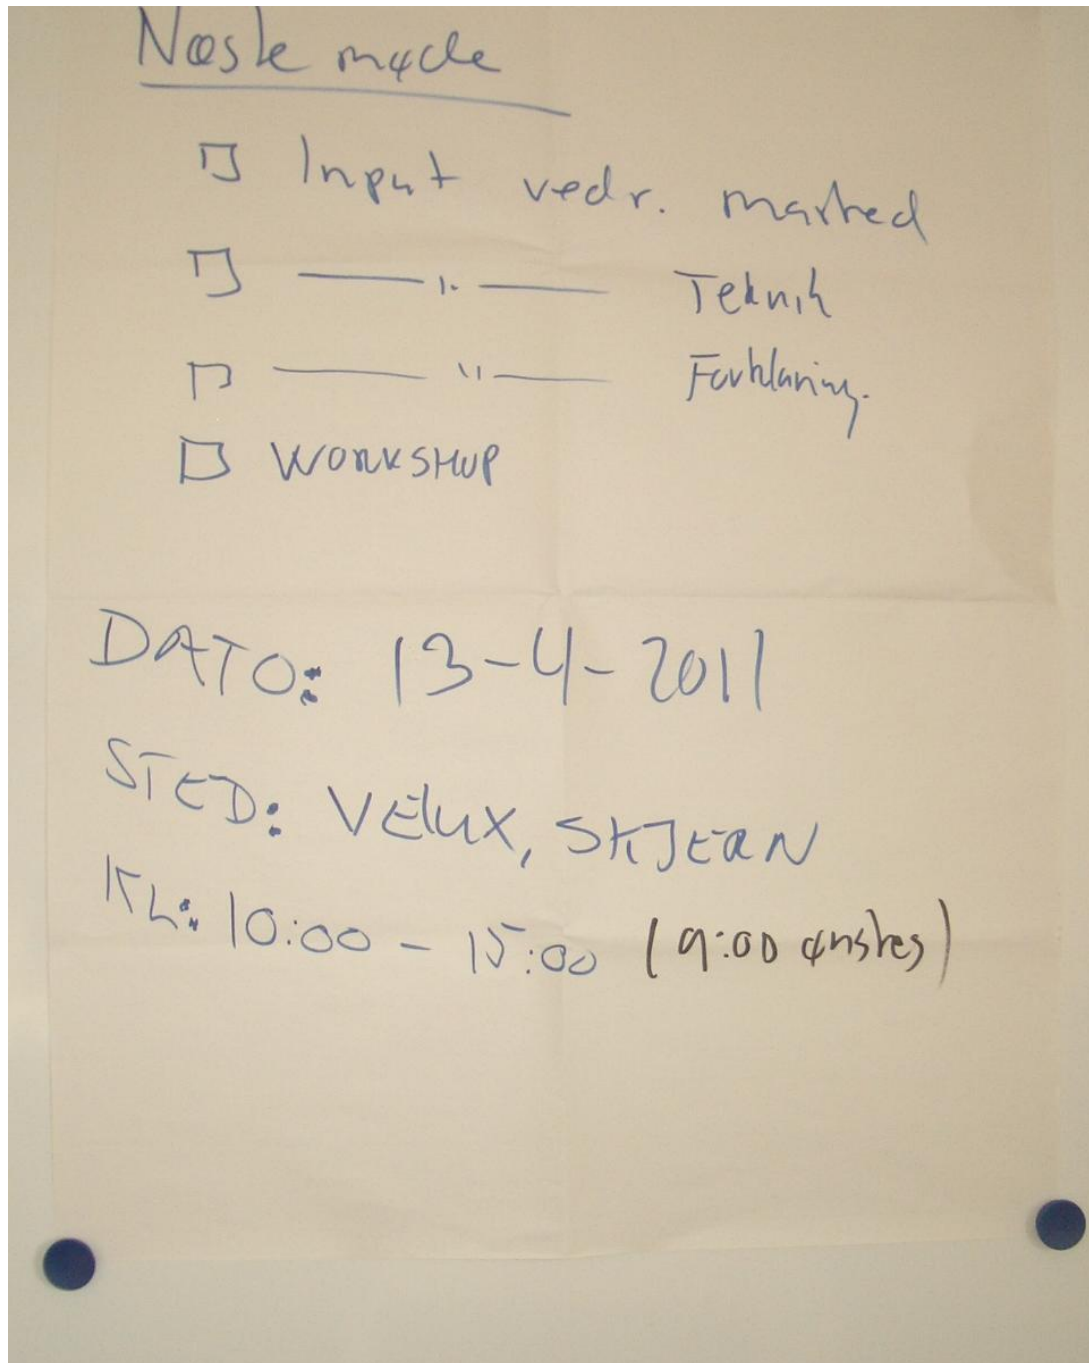 Næste møde
□ Input vedr. marked
□ — " — Teknik
□ — " — Forklaring.
□ WORKSHOP
DATO: 13-4-2011
STED: VELUX, SKJERN
KL: 10:00 - 15:00 (9:00 ønskes)